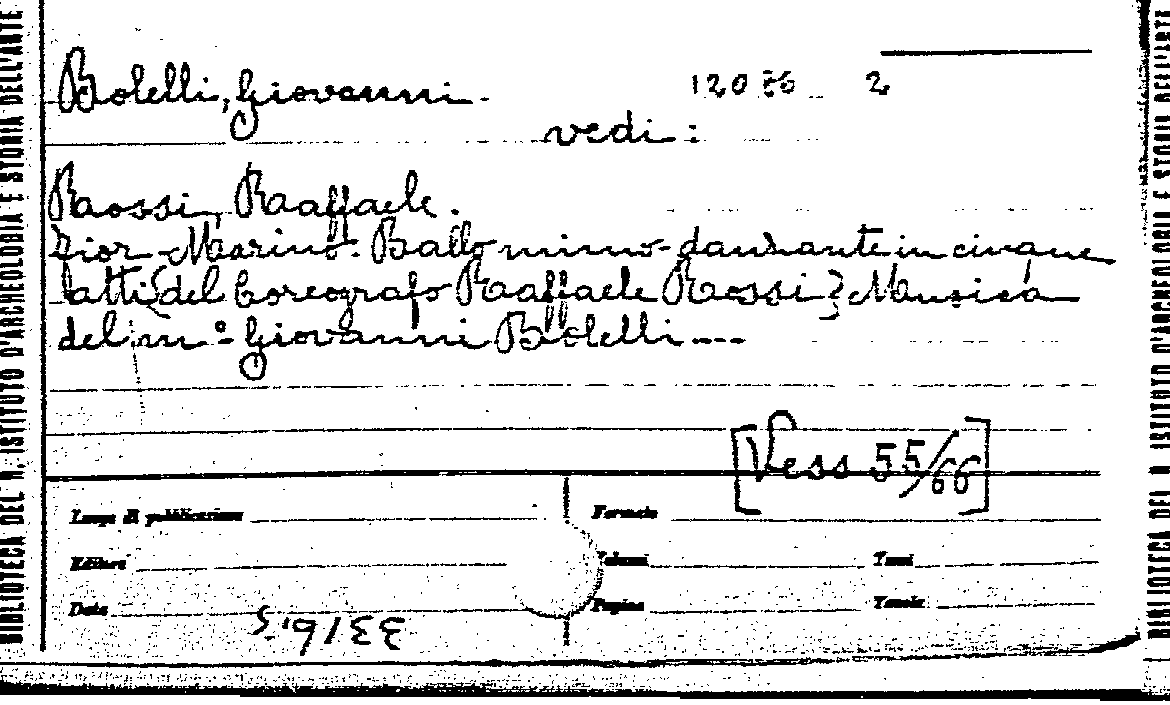 BIBLIOTECA DEL R. ISTITUTO D'ARCHEOLOGIA E STORIA DELL'ARTE
Bolelli, Giovanni. 12086 2
vedi:
Rossi, Raffaele.
Fior-Marino. Ballo mimo-danzante in cinque
atti del Coreografo Raffaele Rossi. Musica
del m° Giovanni Bolelli ---
[Vess 55/66]
Luogo di pubblicazione Formato
Editore Volumi Tomi
Data Pagine Tavole
BIBLIOTECA DEL R. ISTITUTO D'ARCHEOLOGIA E STORIA DELL'ARTE